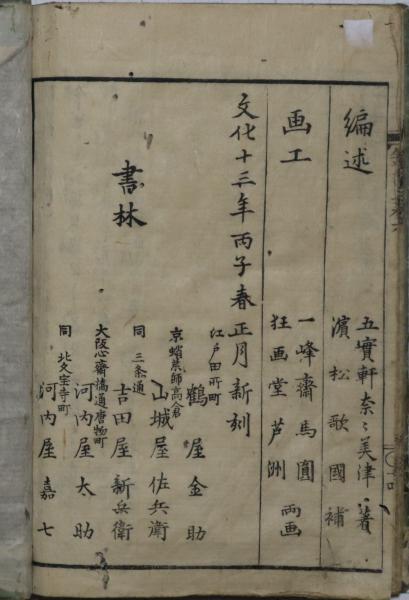 編述
五實軒奈〻美津 著
濱松歌國 補
画工
一峰齋馬圓
狂画堂芦洲 両画
文化十三年丙子春正月新刻
書林
江戸田所町
鶴屋金助
京蛸薬師高倉
山城屋佐兵衛
同 三条通
吉田屋新兵衛
大阪心齋橋通唐物町
河内屋太助
同 北久宝寺町
河内屋嘉七